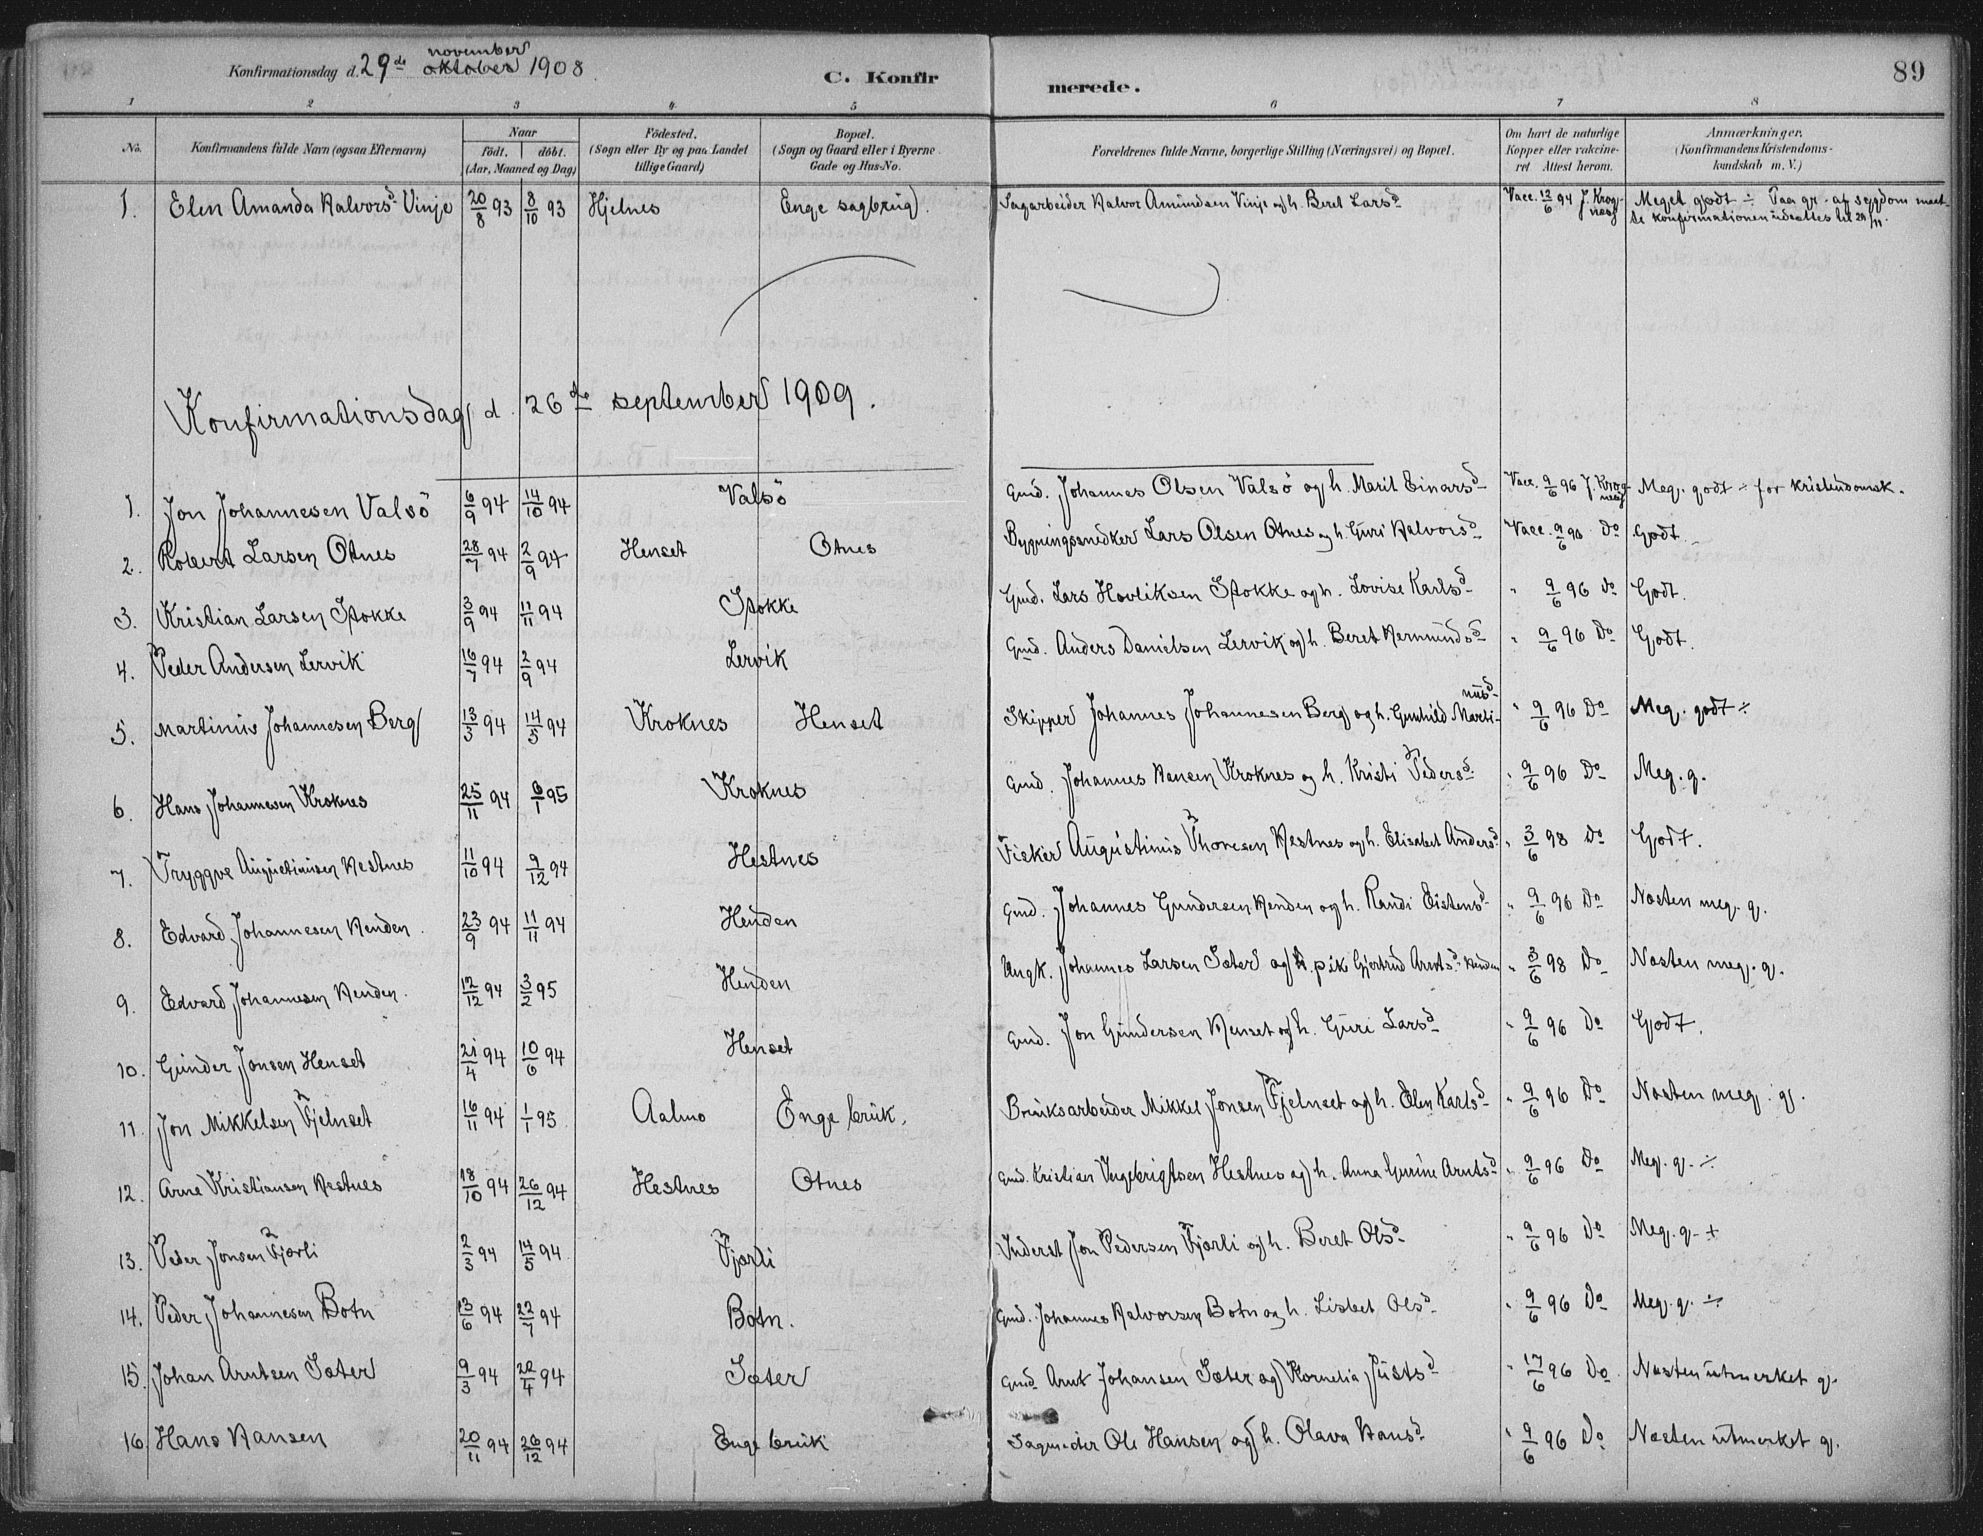 november
Konfirmationsdag d. 29de oktober 1908.
C. Konfirmerede.
89
1 2 3 4 5 6 7 8
No.
Konfirmandens fulde Navn (ogsaa Efternavn)
Naar
födt. döbt.
(Aar, Maaned og Dag)
Födested.
(Sogn eller By og paa Landet
tillige Gaard)
Bopæl.
(Sogn og Gaard eller i Byerne
Gade og Hus-No.
Forældrenes fulde Navne, borgerlige Stilling (Næringsvei) og Bopæl.
Om havt de naturlige
Kopper eller vaccine-
ret Attest herom.
Anmærkninger.
(Konfirmandens Kristendoms-
kundskab m. V.)
1. Elen Amanda Halvorsd. Vinje 20/8 93 8/10 93 Hjelnes Enge sagbrug. Sagarbeider Halvor Amundsen Vinje og h. Beret Larsd. Vacc. 12/6 94 J. Krog- Meget godt ÷ Paa gr. af sygdom maat-
nes te konfirmationen udsættes til 29/11.
Konfirmationsdag d. 26de september 1909.
1. Jon Johannesen Valsö 6/9 94 14/10 94 Valsö Gmd. Johannes Olsen Valsö og h. Marit Einarsd. Vacc. 9/6 96 J. Krog- Meg. godt ÷ for kristendomsk.
nes
2. Robert Larsen Otnes 28/7 94 2/9 94 Henset Otnes Bygningssnedker Lars Olsen Otnes og h. Guri Halvorsd. Vacc. 9/6 96 Do Godt.
3. Kristian Larsen Stokke 3/9 94 11/11 94 Stokke Gmd. Lars Hovliksen Stokke og h. Lovise Karlsd. " 9/6 96 Do Godt.
4. Peder Andersen Lervik 16/7 94 2/9 94 Lervik Gmd. Anders Danielsen Lervik og h. Beret Hermundsd. " 9/6 96 Do Godt.
nusd.
5. Martinus Johannesen Berg 13/3 94 14/5 94 Kroknes Henset Skipper Johannes Johannesen Berg og h. Gunhild Marti- " 9/6 96 Do Meg. godt ÷
6. Hans Johannesen Kroknes 25/11 94 6/1 95 Kroknes Gmd. Johannes Hansen Kroknes og h. Kristi Pedersd. " 9/6 96 Do Meg. g.
7. Tryggve Augustinusen Hestnes 11/10 94 9/12 94 Hestnes Fisker Augustinus Thoresen Hestnes og h. Elisabet Andersd. " 3/6 98 Do Godt.
8. Edvard Johannesen Henden. 23/9 94 11/11 94 Henden Gmd. Johannes Gundersen Henden og h. Randi Eistensd. " 9/6 96 Do Næsten meg. g.
9. Edvard Johannesen Henden. 12/12 94 3/2 95 Henden Ungk. Johannes Larsen Sæter og pik Gjertrud Arntsd. Henden " 3/6 98 Do Næsten meg. g.
10. Gunder Jonsen Henset 21/4 94 10/6 94 Henset Gmd. Jon Gundersen Henset og h. Guri Larsd. " 9/6 96 Do Godt.
11. Jon Mikkelsen Fjelnset 16/11 94 1/1 95 Aalmo Enge bruk. Bruksarbeider Mikkel Jonsen Fjelnset og h. Elen Karlsd. " 9/6 96 Do Næsten meg. g.
12. Arne Kristiansen Hestnes 18/10 94 26/12 94 Hestnes Otnes Gmd. Kristian Ingebrigtsen Hestnes og h. Anna Gurine Arntsd. " 9/6 96 Do Meg. g. ÷
13. Peder Jonsen Fjærli 2/3 94 14/5 94 Fjærli Inderst Jon Pedersen Fjærli og h. Beret Olsd. " 9/6 96 Do Meg. g. +
14. Peder Johannesen Botn 13/6 94 22/7 94 Botn. Gmd. Johannes Halvorsen Botn og h. Lisbet Olsd. " 9/6 96 Do Meg. g. ÷
15. Johan Arntsen Sæter 9/3 94 22/4 94 Sæter Gmd. Arnt Johansen Sæter og Kornelia Justsd. " 17/6 96 Do Næsten utmerket g.
16. Hans Hansen 20/11 94 26/12 94 Enge bruk Ole Hansen og h. Olava Hansd. " 9/6 96 Do Næsten utmerket g.